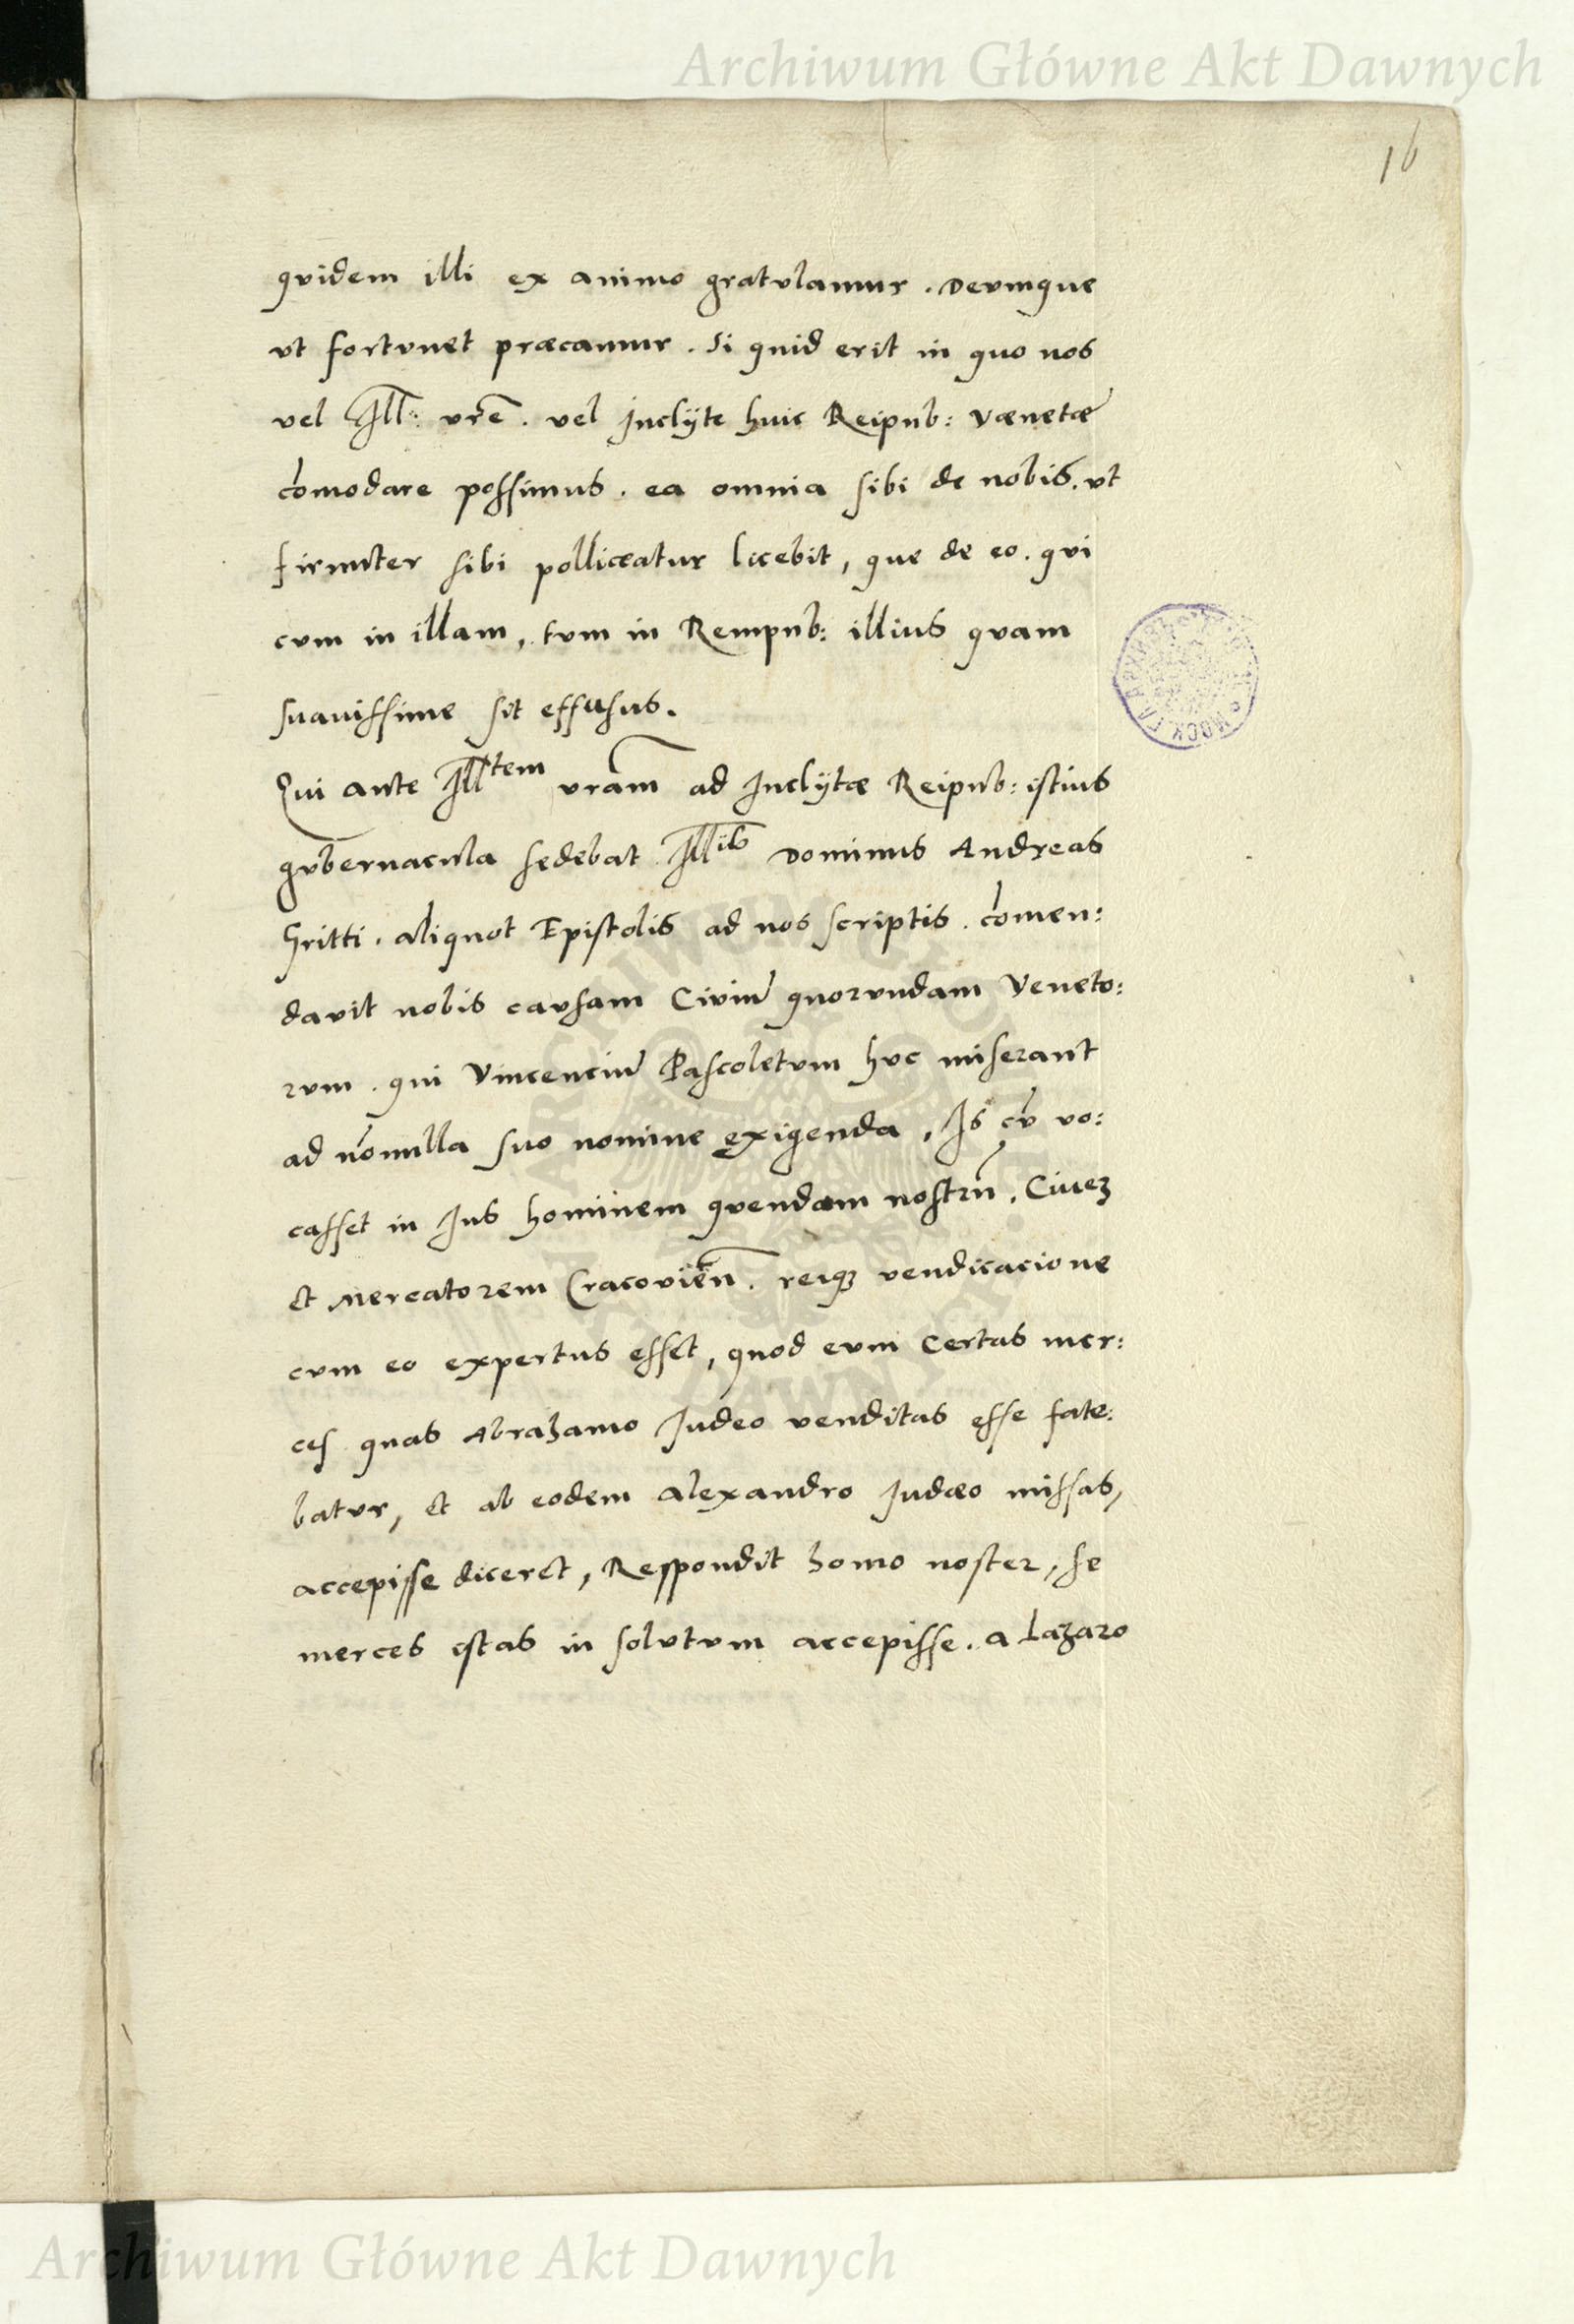 Archiwum Główne Akt Dawnych
16
quidem illi ex animo gratulamur. Deumque
ut fortunet præcamur. Si quid erit in quo nos
vel Ill: vrē. vel Inclÿte huic Reipub: Vænetæ
cōmodare possimus. ea omnia sibi de nobis. ut
firmiter sibi polliceatur licebit, que de eo. qui
cum in illam, tum in Rempub: illius quam
suavissime sit effusus.
Qui ante Illtem vrām ad Inclÿtæ Reipub: istius
gubernacula sedebat Illis Dominus Andreas
Gritti. aliquot Epistolis ad nos scriptis. cōmen:
davit nobis causam Civiū quorundam Veneto:
rum. qui Vincenciū Pascoletum huc miserant
ad nōnulla suo nomine exigenda, Is cū vo:
casset in Ius hominem quendam nostrū. Civeз
et Mercatorem Cracovien̄. reiqꝫ vendicacione
cum eo expertus esset, quod eum certas mer:
ces quas Abrahamo Iudeo venditas esse fate:
batur, et ab eodem Alexandro Iudæo missas,
accepisse diceret, Respondit homo noster, se
merces istas in solutum accepisse. a Lazaro
Archiwum Główne Akt Dawnych